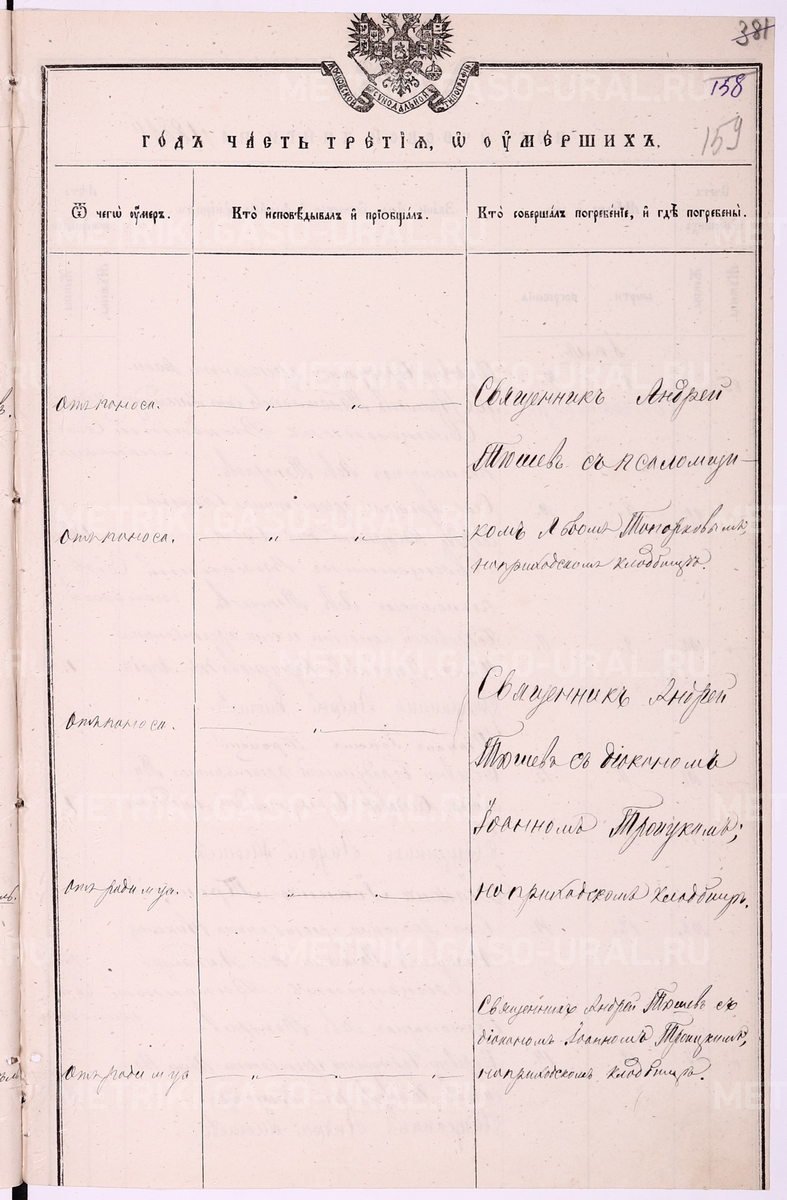 381
158
159
МОСКОВСКОЙ СѴНОДАЛЬНОЙ ТИПОГРАФІИ
ГОДЪ ЧАСТЬ ТРЕТІЯ, Ѡ ОУМЕРШИХЪ.
Ѿ чегѡ оумеръ.
Кто исповѣдывалъ и пріобщалъ.
Кто совершалъ погребеніе, и гдѣ погребены.
Отъ поноса.
Священникъ Андрей
Тюшевъ съ псаломщи-
Отъ поноса.
комъ Львомъ Топорковымъ,
на приходскомъ кладбищѣ.
Священникъ Андрей
Отъ поноса.
Тюшевъ съ діакономъ
Іоанномъ Троицкимъ;
Отъ родимца.
на приходскомъ кладбищѣ.
Священникъ Андрей Тюшевъ съ
діакономъ Іоанномъ Троицкимъ;
Отъ родимца
на приходскомъ кладбищѣ.
METRIKI.GASO-URAL.RU